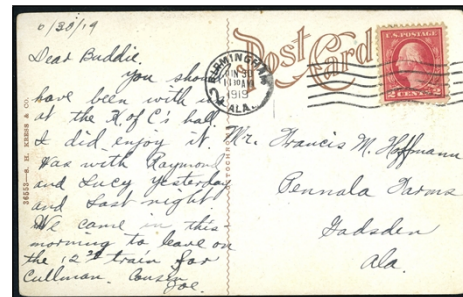 6/30/19
Dear Buddie,
You should
have been with us
at the K of C's hall.
I did enjoy it.
Was with Raymond
and Lucy yesterday
and last night
We came in this
morning to leave on
the 12 train for
Cullman. Cousin
Joe.
36553—S. H. KRESS & CO.
Post Card
BIRMINGHAM
JUN 30
1919
ALA.
U.S. POSTAGE
2 CENTS 2
Mr. Francis M. Hoffmann
Pennala Farms
Gadsden
Ala.